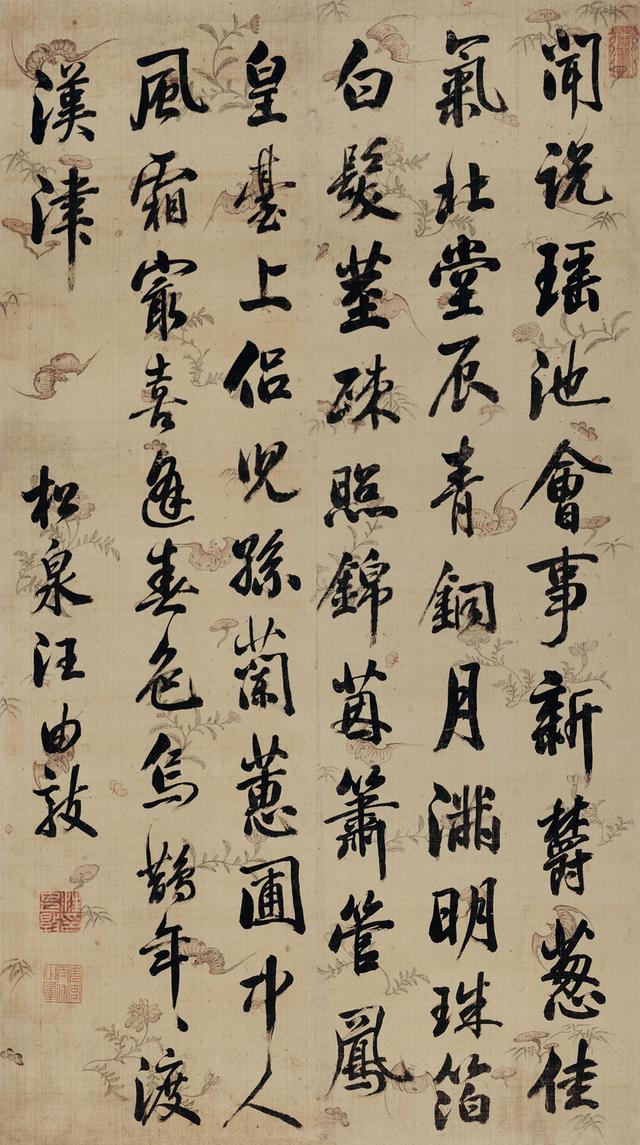 聞說瑤池會事新欝葱佳
氣北堂辰青銅月滿明珠箔
白髮莖疎照錦茵簫管鳳
皇臺上侶兒孫蘭蕙圃中人
風霜㝡喜逢春色烏鵲年々渡
漢津
松泉汪由敦